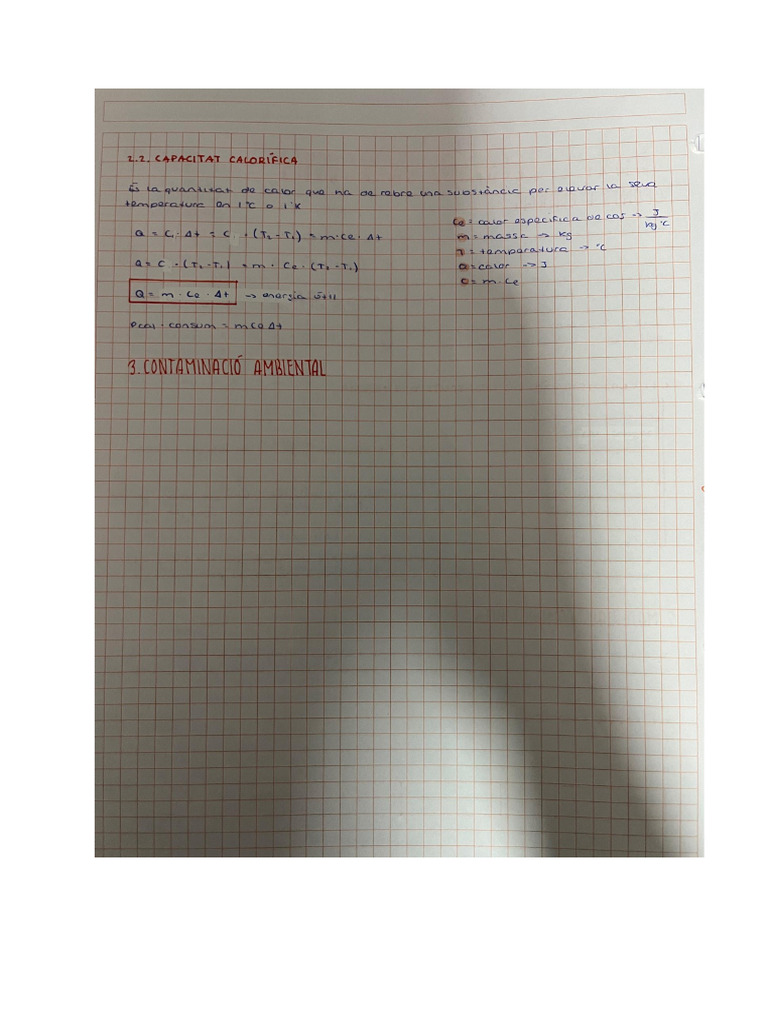 2.2. CAPACITAT CALORÍFICA
És la quantitat de calor que ha de rebre una substància per elevar la seva
temperatura en 1°C o 1°K
Q = C · Δt = C · (T₂ - T₁) = m · Ce · Δt
Q = C · (T₂ - T₁) = m · Ce · (T₂ - T₁)
Q = m · Ce · Δt → energia útil
Pcal · consum = m Ce Δt
Ce = calor específica de cos → J / kg °C
m = massa → kg
T = temperatura → °C
Q = calor → J
C = m · Ce
3. CONTAMINACIÓ AMBIENTAL